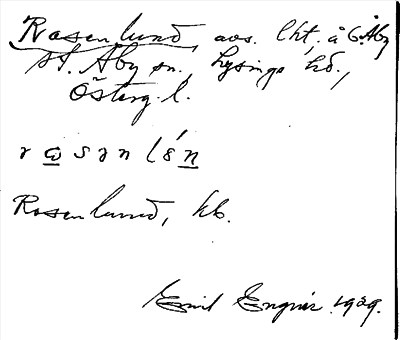 Rosenlund, avs. lht. å 6 Åby
St. Åby sn., Lysings hd.,
Österg. l.
rωsənlén
Rosenlund, kb.
Emil Engqvist 1929.